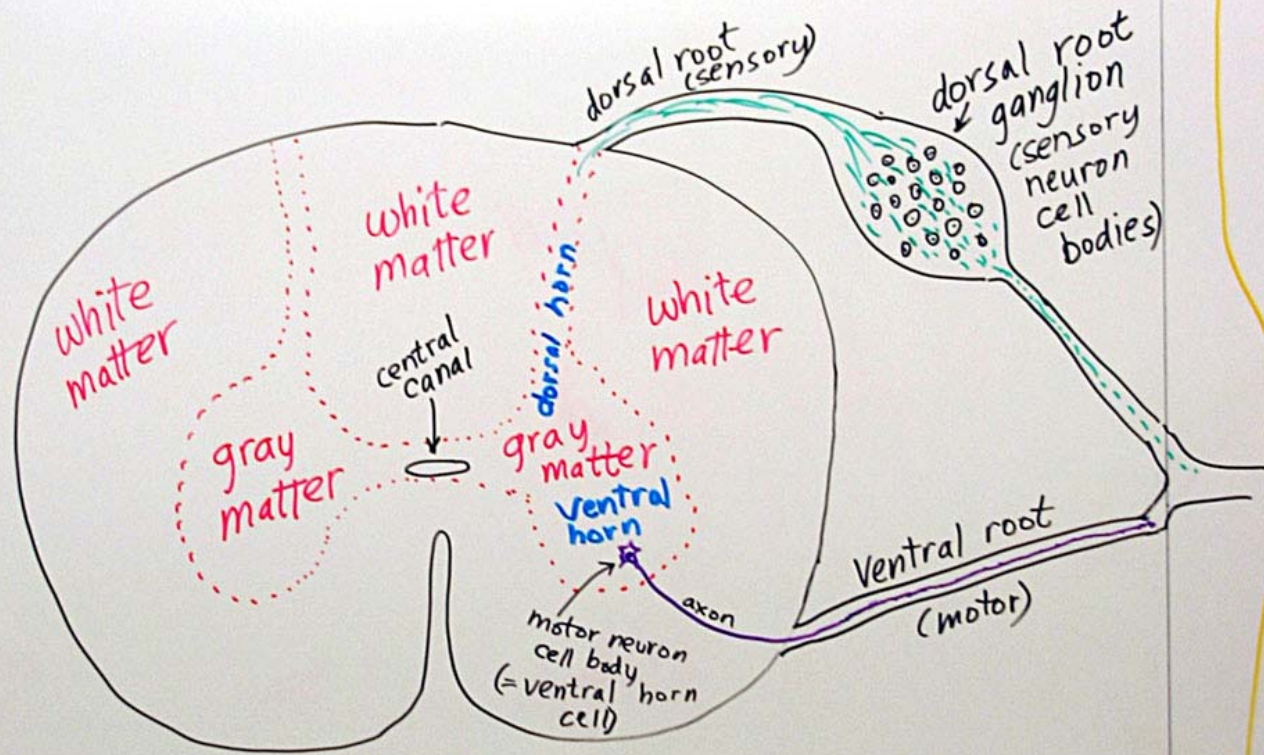 dorsal root
(sensory)
dorsal root
ganglion
(sensory
neuron
cell
bodies)
white
matter
white
matter
white
matter
dorsal horn
central
canal
gray
matter
gray
matter
ventral
horn
motor neuron
cell body
(=ventral horn
cell)
axon
Ventral root
(motor)